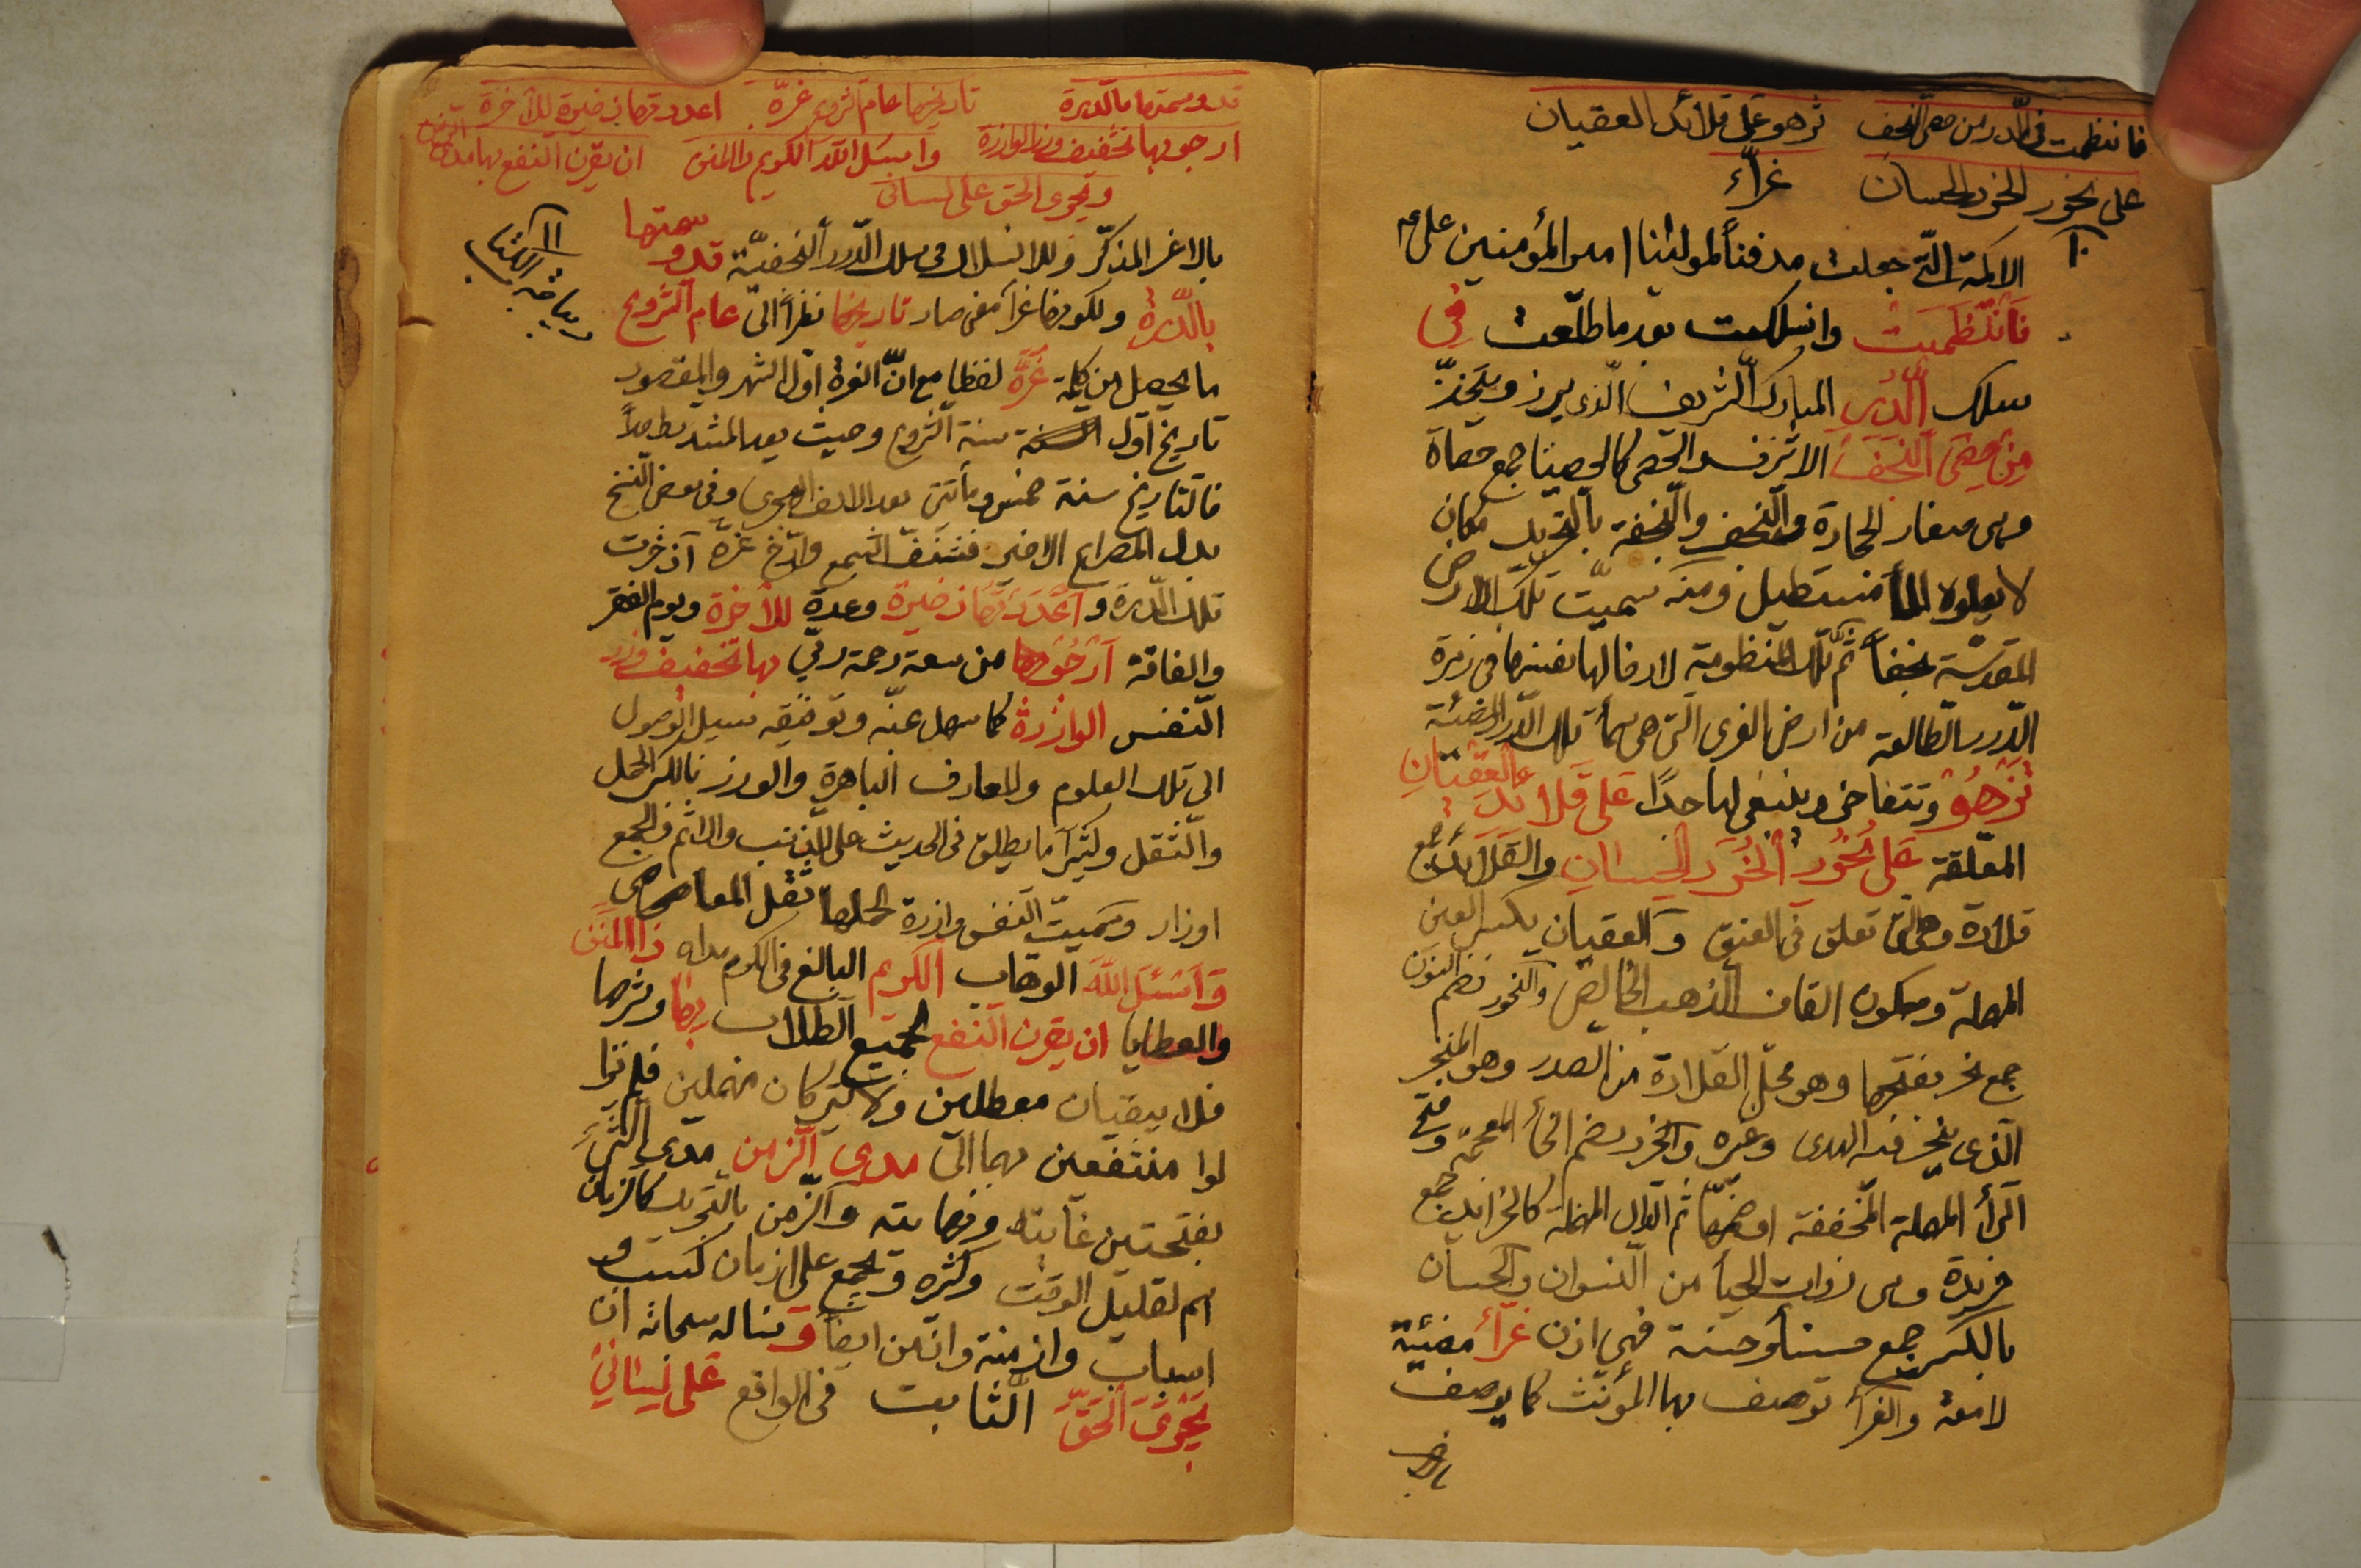 فانتظمت فى الدرر من حصى النجف تزهو على قلائد العقيان
على نحور الخرد الحسان غرّاء
١٠
الاكمة الّتى جعلت مدفناً لمولٰينا امير المؤمنين على ع
فَانْتَظَمَتْ وانسلكت بعد ما طلعت فِى
سلك الدُّرَرِ المبارك الشريف الّذى يبرز ويتخذ
مِنْ حَصَى النَّجَفِ الاشرف والحصى كالحصيات جمع حصاة
وهى صغار الحجارة والنجف والنجفة بالتحريك مكان
لا يعلوه الماء مستطيل ومنه سميّت تلك الارض
المقدسّة نجفاً ثم تلك المنظومة لادخالها نفسها فى زمرة
الدّرر الطالعة من ارض الغرى الّتى هى سماء تلك الدّرر المضيئة
تَزْهُو وتتفاخر وينبغى لها جدّاً عَلى قَلائِد العِقْيَانِ
المعلّقة عَلى نُحُورِ الخُرَّدِ الحِسَانِ والقَلَائِد جمع
قلادة وهى الّتى تعلق فى العنق والعقيان بكسر العين
المهملة وسكون القاف الذهب الخالص والنحور بضم النون
جمع نحر بفتحها وهو محلّ القلادة من الصدر وهو المنحر
الّذى ينحر فيه الهدى وغيره والخرد بضم الخاء المعجمة وفتح
الرّاء المهملة المخففة او ضمّها ثم الدال المهملة كالخرايد جمع
خريدة وهى ذوات الحياء من النسوان والحسان
بالكسر جمع حسناء وحسنة فهى اذن غرّاءُ مضيئة
لامعة والغرّاء توصف بها المؤنّث كما يوصف
بالاغر
قد وسمتها بالدّرة تاريخها عام الشروع غرّة اعددتها ذخيرة للآخرة
ارجو بها تخفيف وزر الوازرة واسئل اللّه الكريم ذا المنن ان يقرن النفع بها مدى الزمن
ويجرى الحق على لسانى
١١
ديباجة الكتاب
بالاغر المذكّر وللانسلاك فى سلك الدّرر النجفيّة قد وسمتها
بالدُّرة ولكونها غرّاء معنى صار تاريخها نظراً الى عام الشروع
ما يحصل من كلمة غُرّة لفظا مع انّ الغرة اول الشهر والمقصود
تاريخ اول سنة الشروع وحيث يعد المشدد حرفاً
فالتاريخ سنة خمس ومأتين بعد الالف الهجرى وفى بعض النسخ
بدل المصراع الاخير فشنّف السمع وارّخ غرّة اذ خرجت
تلك الدّرة و اَعْدَدْتُهَا ذخيرة وعدة للآخرة ويوم الفقر
والفاقة اَرْجُو بها من سعة رحمة ربّى بها تخفيف وزر
النّفس الوازرة كما سهل عنّه وتوفيقه سبيل الوصول
الى تلك العلوم والمعارف الباهرة والوزر بالكسر الحمل
والثقل وكثيراً ما يطلق فى الحديث على الذّنب والاثم والجمع
اوزار وسمّيت النفس وازرة لحملها ثقل المعاصى
وَاَسْئَلُ اللّهَ الوهّاب الكريم البالغ فى الكرم مداه ذا المنن
والعطايا ان يقرن النفع لجميع الطلاب بها وبشرحها
فلا يبقيان معطلين ولا يتركان مهملين فلم يزا
لوا منتفعين بهما الى مدى الزّمن مدى الشئ
بفتحتين غايته ونهايته والزّمن بالتحريك كالزمان
اسم لقليل الوقت وكثيره ويجمع على ازمان كسبب و
اسباب وازمنة وازمن ايضاً و نساله سبحانه ان
يُجْرىَ الحَقَّ الثابت فى الواقع عَلى لِسَانِى